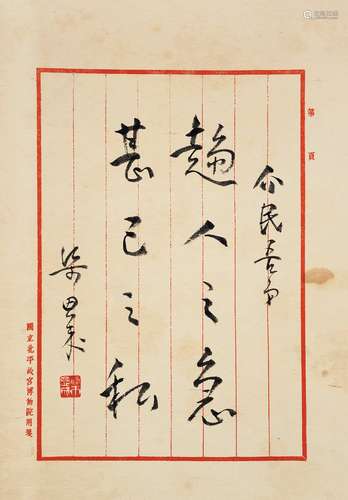 第 頁
介民吾弟
趨人之急
甚己之私
梁思成
國立北平故宮博物院用箋